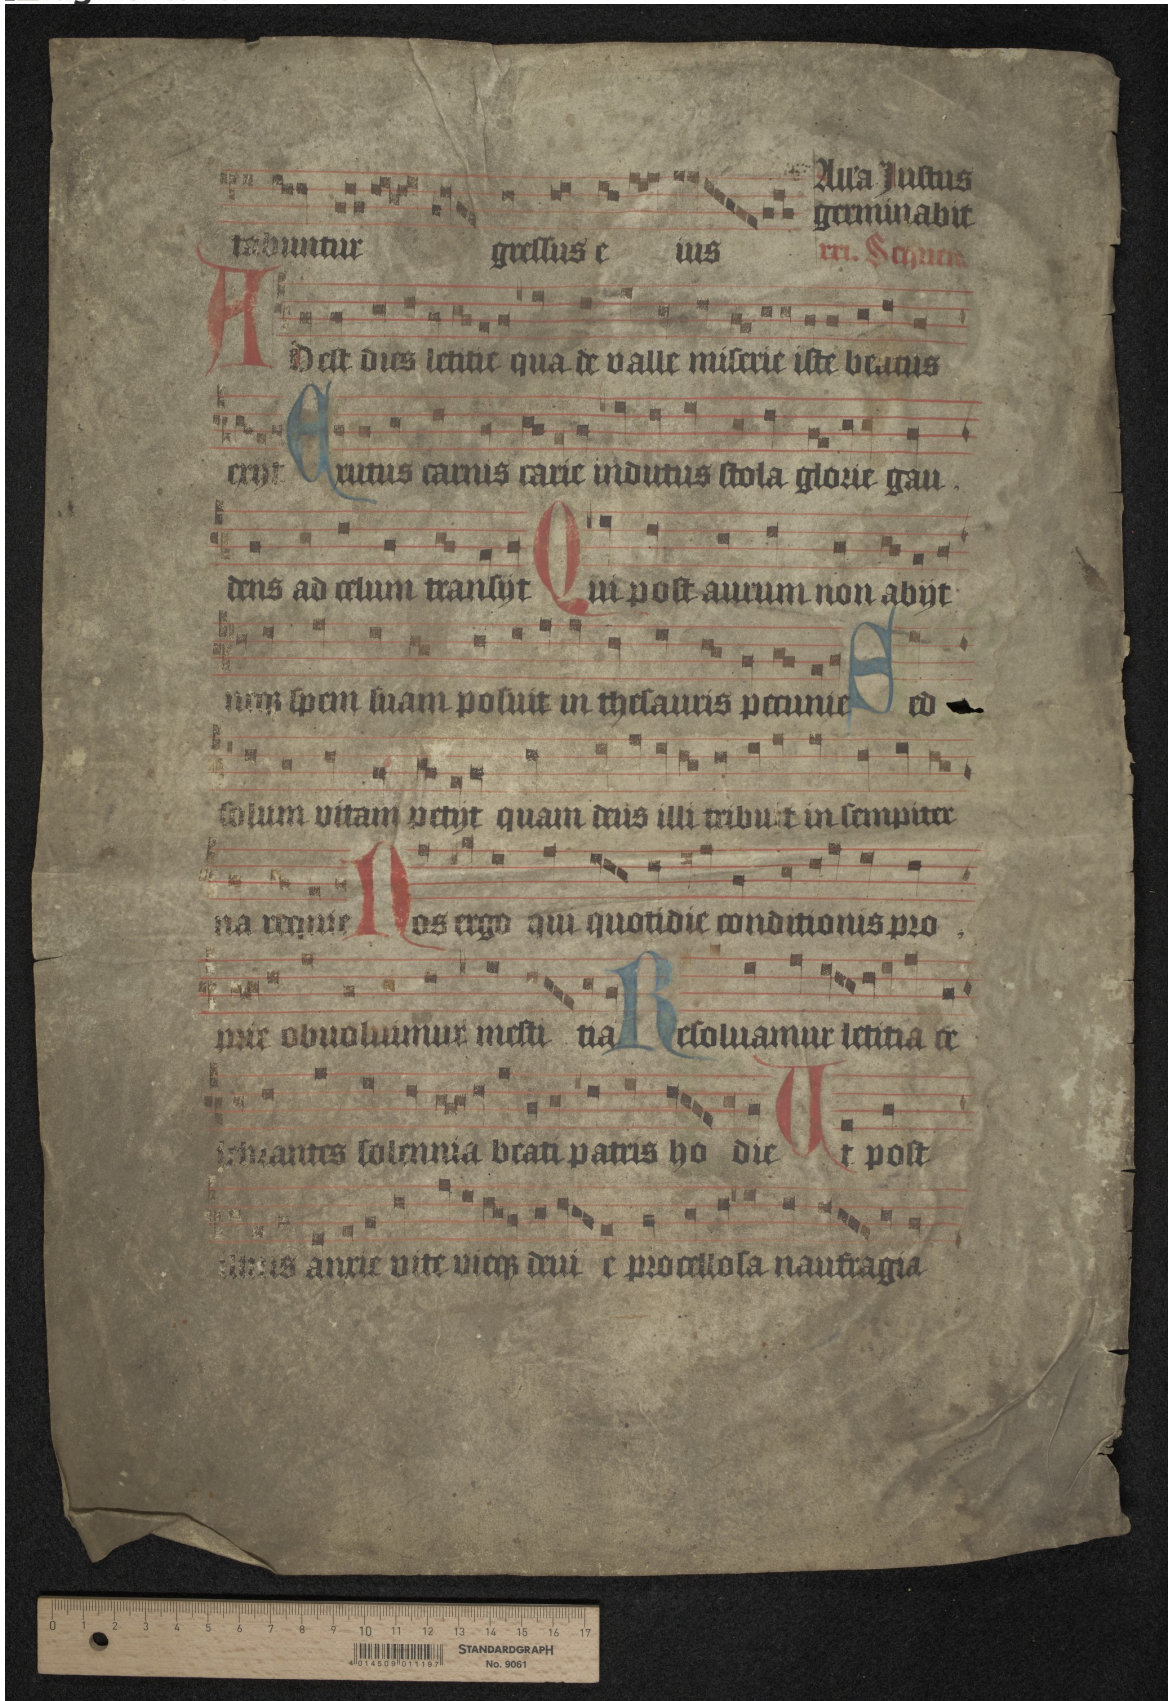 Alla Justus
germinabit
tabuntur gressus e ius
rei. Sequen
Adest dies letitie qua de valle miserie iste beatus
exijt Erutus carnis carie indutus stola glorie gau
dens ad celum transijt Qui post aurum non abijt
neqz spem suam posuit in thesauris pecunie Sed
solum vitam petijt quam deus illi tribuit in sempiter
na requie Nos ergo qui quotidie conditionis pro
prie obuoluimur mesti tia Resoluamur letitia ce
lebrantes solennia beati patris ho die Ut post
anxie vite vieqz deui e procellosa naufragia
0 1 2 3 4 5 6 7 8 9 10 11 12 13 14 15 16 17
STANDARDGRAPH
4 014509 011197
No. 9061